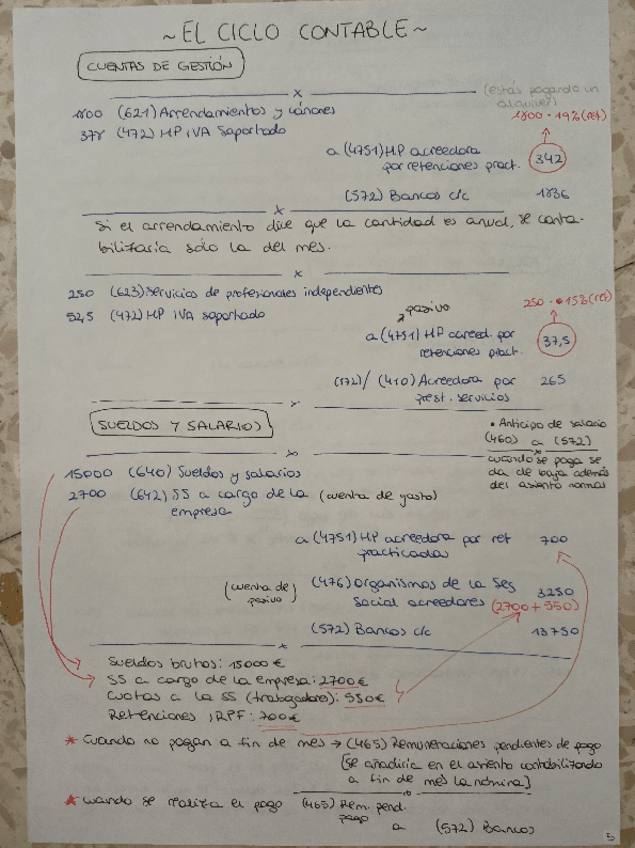 ~EL CICLO CONTABLE~
CUENTAS DE GESTIÓN
x (estás pagando un
alquiler)
1800 (621) Arrendamientos y cánones
1800 · 19% (ret)
378 (472) HP IVA Soportado
a (4751) HP acreedora
por retenciones pract. 342
(572) Bancos c/c 1836
x
Si el arrendamiento dice que la cantidad es anual, se conta-
bilizaria sólo la del mes.
x
250 (623) Servicios de profesionales independientes
250 · 15% (ret)
52,5 (472) HP IVA soportado
pasivo
a (4751) HP acreed. por
retenciones pract. 37,5
(572)/ (410) Acreedora por 265
prest. servicios
x
SUELDOS Y SALARIOS
• Anticipo de salario
(460) a (572)
x
cuando se paga se
da de baja además
del asiento normal
x
15000 (640) Sueldos y salarios
2700 (642) SS a cargo de la (cuenta de gasto)
empresa
a (4751) HP acreedora por ret 700
practicadas
(cuenta de
pasivo)
(476) Organismos de la Seg
Social acreedores 3250
(2700 + 550)
(572) Bancos c/c 13750
x
Sueldos brutos: 15000 €
SS a cargo de la empresa: 2700€
Cuotas a la SS (trabajadores): 550€
Retenciones IRPF: 700€
* Cuando no pagan a fin de mes → (465) Remuneraciones pendientes de pago
[se añadiría en el asiento contabilizando
a fin de mes la nómina]
* Cuando se realiza el pago (465) Rem. pend.
pago
a (572) Bancos
5